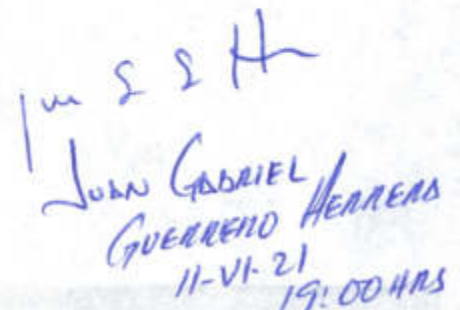 Juan G G H
JUAN GABRIEL
GUERRERO HERRERA
11-VI-21
19:00 HRS